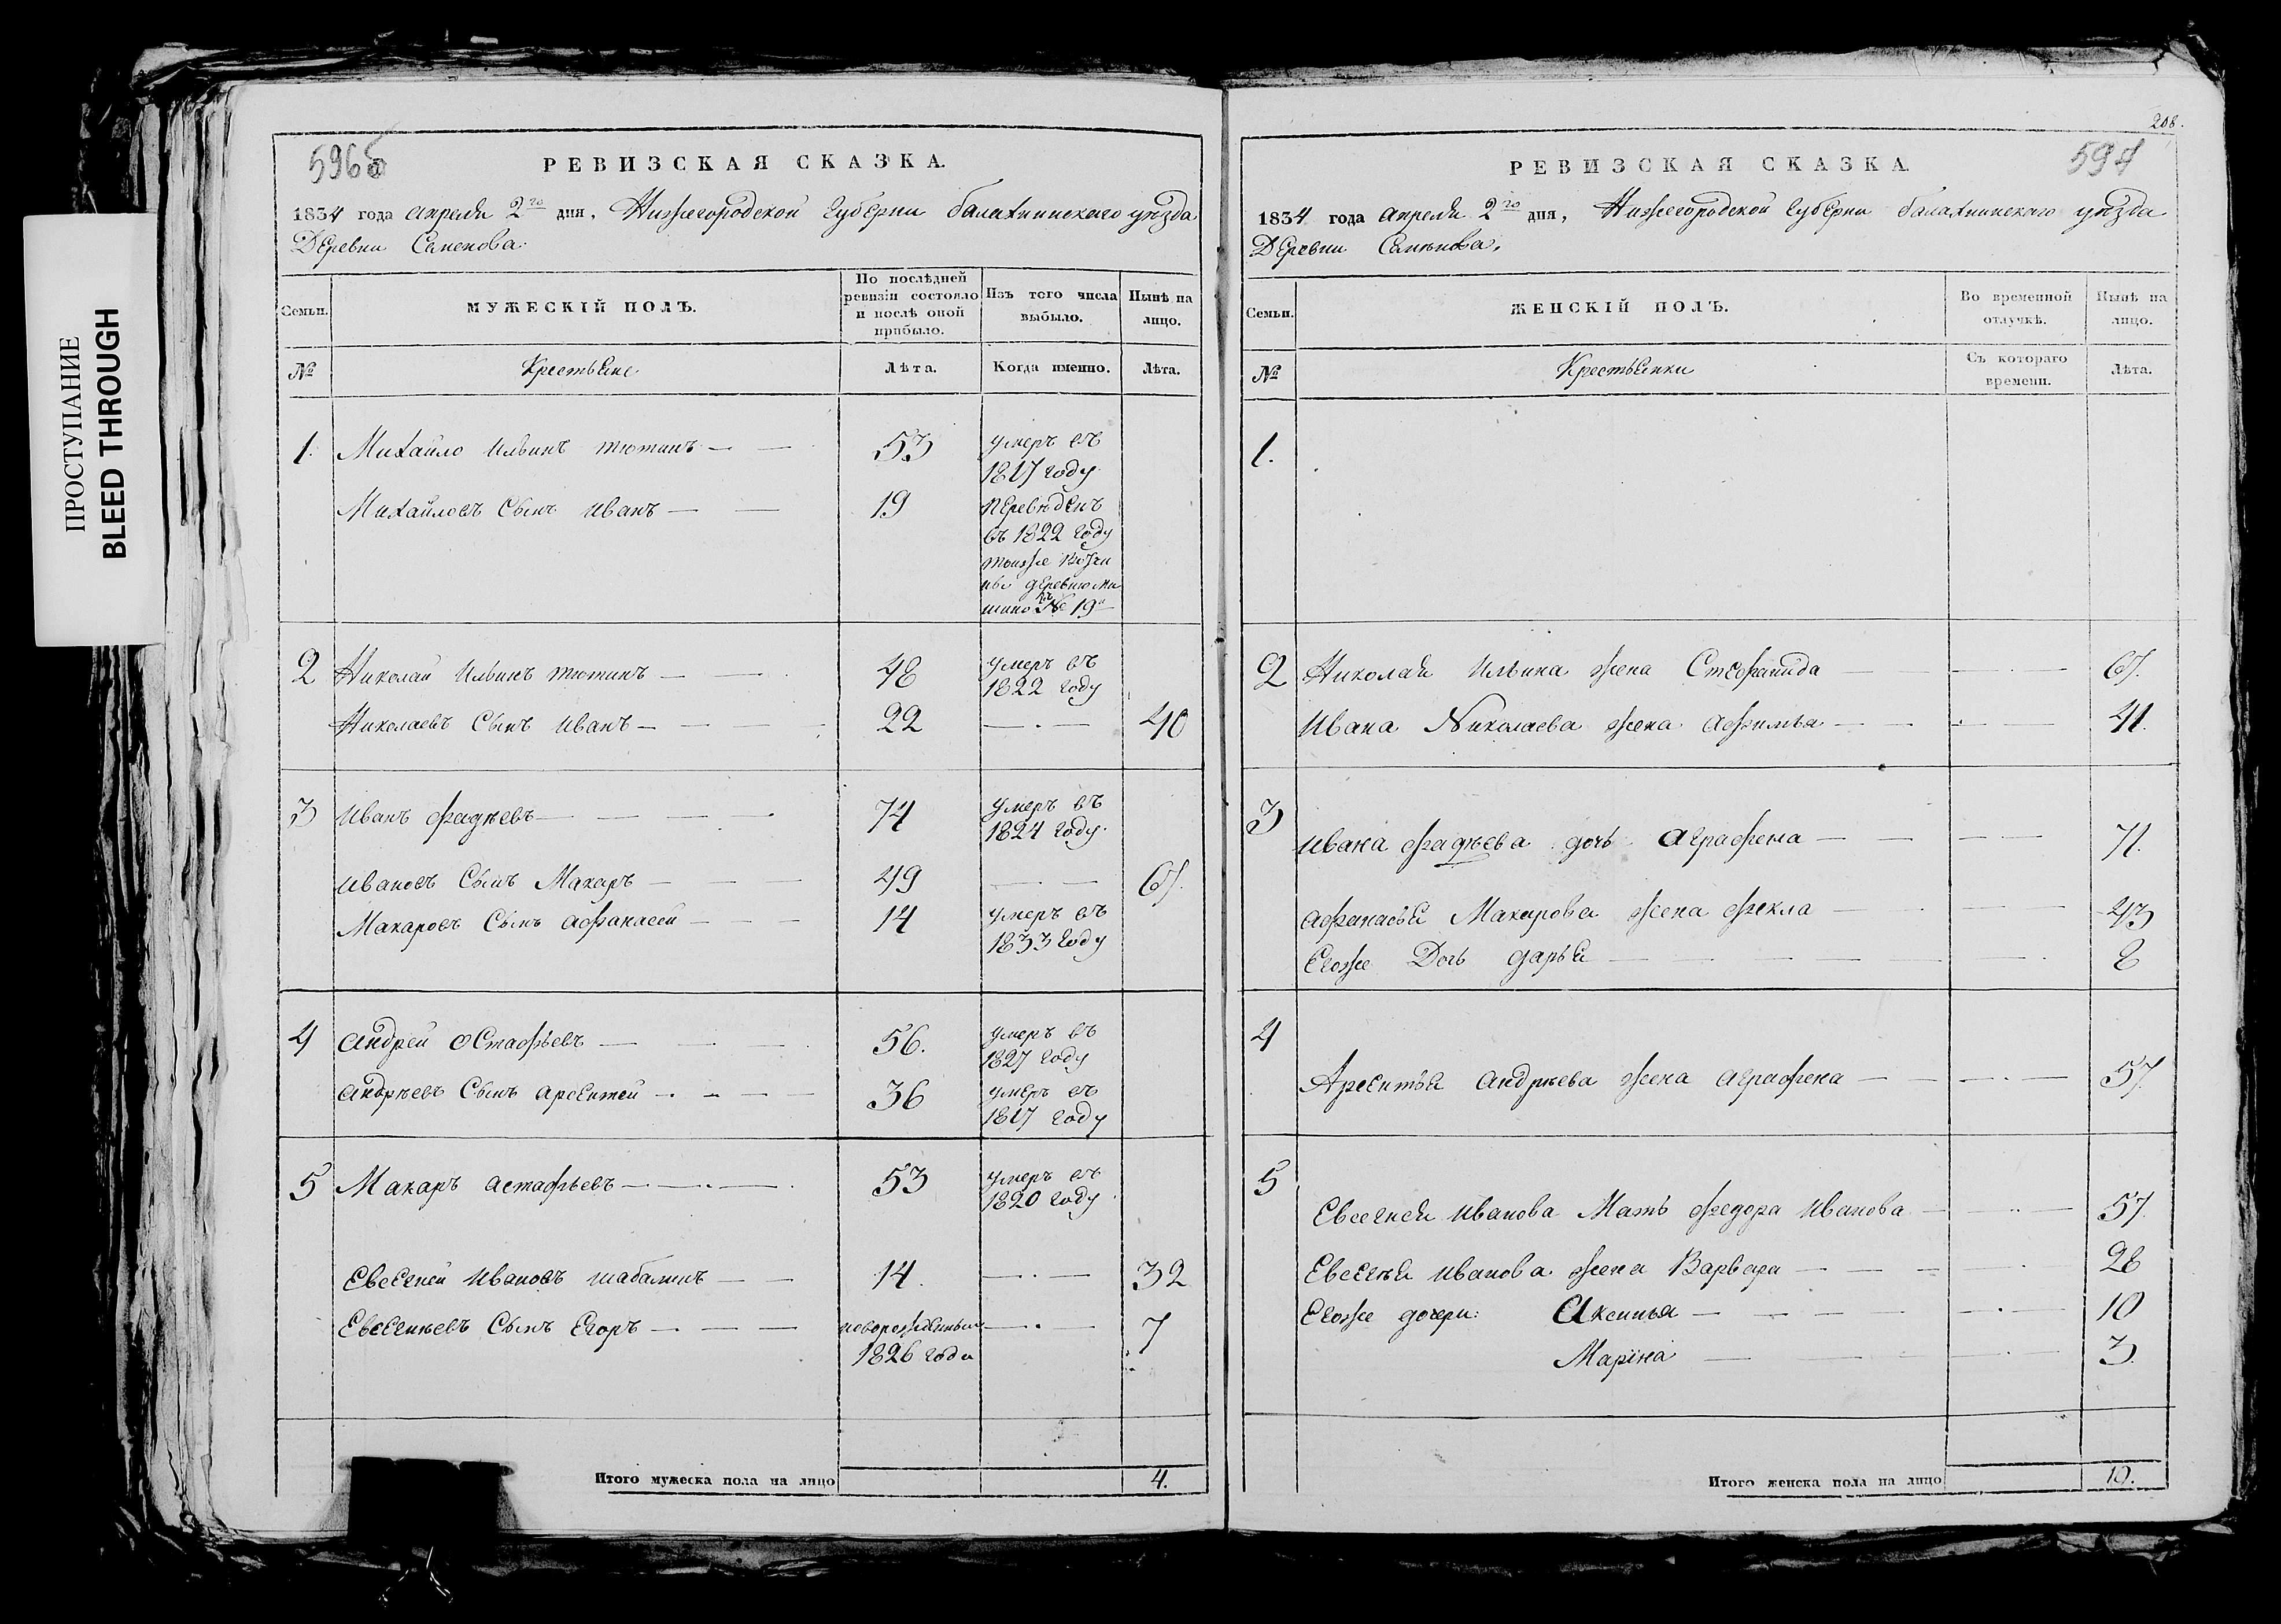 ПРОСТУПАНИЕ
BLEED THROUGH
596б
РЕВИЗСКАЯ СКАЗКА.
1834 года апреля 2го дня, Нижегородской губернии балахнинскаго уѣзда
Деревни Саменова.
Семьи.
МУЖЕСКІЙ ПОЛЪ.
По послѣдней
ревизіи состояло
и послѣ оной
прибыло.
Изъ того числа
выбыло.
Нынѣ на
лицо.
№
Крестьяне
Лѣта.
Когда именно.
Лѣта.
1. Михайло Ильинъ тютинъ — — 53 умеръ въ
1817 году
Михайловъ Сынъ Иванъ — — 19 переведенъ
въ 1822 году
тоиже
деревню
№ 19й
2 Николай Ильинъ тютинъ — — 48 умеръ въ
1822 году
Николаевъ Сынъ Иванъ — — — 22 — . — 40
3 Иванъ фадѣевъ — — — — 74 умеръ въ
1824 году.
Ивановъ Сынъ Макаръ — — — 49 — — 67.
Макаровъ Сынъ афанасей — — — 14 умеръ въ
1833 году
4 андрей остафьевъ — — — 56. умеръ въ
1827 году
андрѣевъ Сынъ арсентей — — — 36 умеръ въ
1817 году
5 Макаръ астафьевъ — — — 53 умеръ въ
1820 году
Евсегней Ивановъ шабалинъ — — 14. — . — 32
Евсегнѣевъ Сынъ Егоръ — — — новорожденный — . — 7
1826 года
Итого мужеска пола на лицо 4.
208.
597
РЕВИЗСКАЯ СКАЗКА
1834 года апреля 2го дня, Нижегородской губернии балахнинскаго уѣзда
Деревни Саменова.
Семьи.
ЖЕНСКІЙ ПОЛЪ.
Во временной
отлучкѣ.
Нынѣ на
лицо.
№
Крестьянки
Съ котораго
времени.
Лѣта.
1.
2 Николая Ильина жена Стефанида — — . — 67.
Ивана Николаева жена афимья — — — 41.
3 Ивана фадѣева дочь аграфена — — — . — 71.
афанасья Макарова жена фекла — — — — 43
Егоже Дочь дарья — — — — — 8
4
Арсентья андрѣева жена аграфена — — — . — 57
5
Евсегнея Иванова Мать федора Иванова — . . — 57.
Евсегнѣя Иванова жена Варвара — — — — . 28
Егоже дочери: Аксинья — — — — . — 10
Марина — — — . — 3.
Итого женска пола на лицо 10.